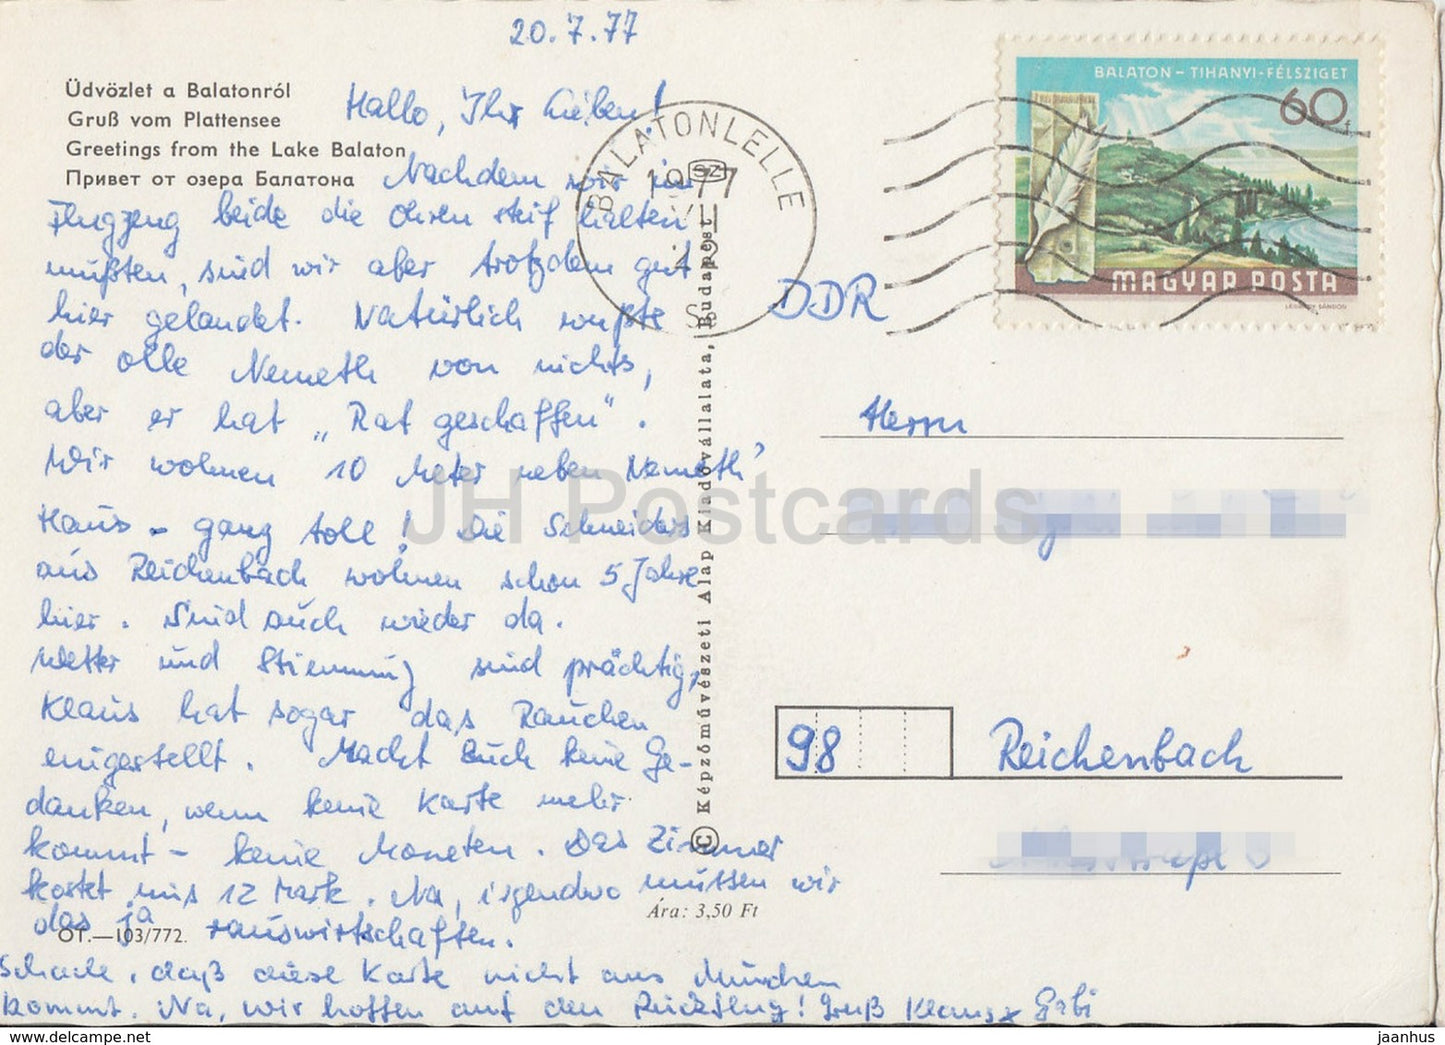 20.7.77
Üdvözlet a Balatonról
Gruß vom Plattensee
Greetings from the Lake Balaton
Привет от озера Балатона
Hallo, Ihr Lieben!
Nachdem wir im
Flugzeug beide die Ohren steif halten
mußten, sind wir aber trotzdem gut
hier gelandet. Natürlich wußte
der olle Nemeth von nichts,
aber er hat „Rat geschaffen".
Wir wohnen 10 Meter neben Nemeth'
Haus - ganz toll! Die Schneiders
aus Reichenbach wohnen schon 5 Jahre
hier. Sind auch wieder da.
Wetter und Stimmung sind prächtig,
Klaus hat sogar das Rauchen
eingestellt. Macht Euch keine Ge-
danken, wenn keine Karte mehr
kommt - keine Moneten. Das Zimmer
kostet uns 12 Mark. Na, irgendwo müssen wir
das ja rauswirtschaften.
Schade, daß diese Karte nicht aus München
kommt. Na, wir hoffen auf den Rückflug! Gruß Klaus + Gabi
OT.—103/772.
Ára: 3,50 Ft
© Képzőművészeti Alap Kiadóvállalata, Budapest
BALATONLELLE
1977
BALATON – TIHANYI-FÉLSZIGET
60f
MAGYAR POSTA
LÉGRÁDY SÁNDOR
DDR
Herrn
98 Reichenbach
JH Postcards
www.delcampe.net
jaanhus